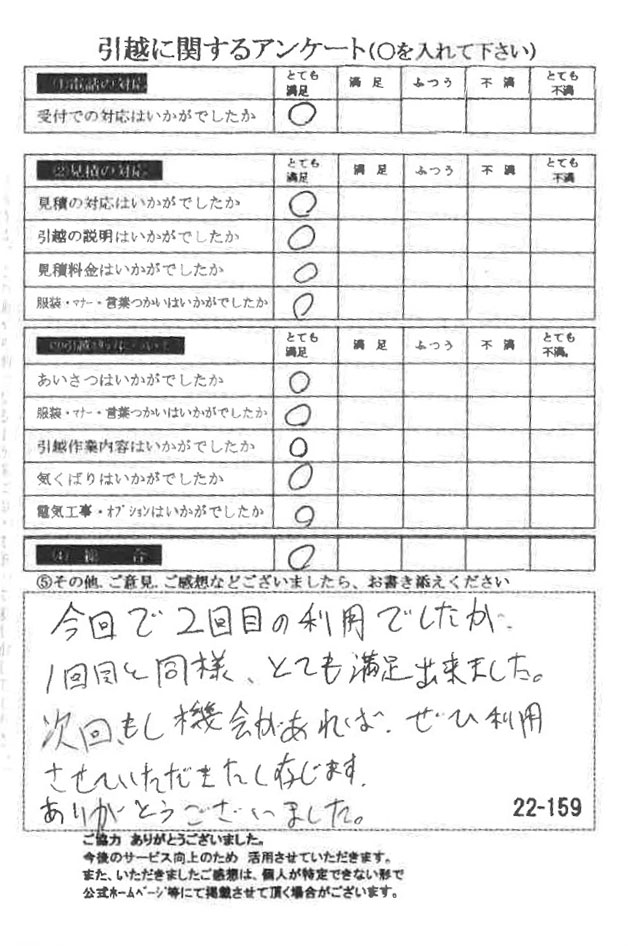 引越に関するアンケート(〇を入れて下さい)
とても満足 満足 ふつう 不満 とても不満
受付での対応はいかがでしたか
②見積の対応 とても満足 満足 ふつう 不満 とても不満
見積の対応はいかがでしたか
引越の説明はいかがでしたか
見積料金はいかがでしたか
服装・マナー・言葉つかいはいかがでしたか
とても満足 満足 ふつう 不満 とても不満
あいさつはいかがでしたか
服装・マナー・言葉つかいはいかがでしたか
引越作業内容はいかがでしたか
気くばりはいかがでしたか
電気工事・オプションはいかがでしたか
(4) 総合
⑤その他、ご意見、ご感想などございましたら、お書き添えください
今回で2回目の利用でしたが、
1回目と同様、とても満足出来ました。
次回、もし機会があれば、ぜひ利用
させていただきたく存じます。
ありがとうございました。
22-159
ご協力 ありがとうございました。
今後のサービス向上のため 活用させていただきます。
また、いただきましたご感想は、個人が特定できない形で
公式ホームページ等にて掲載させて頂く場合がございます。